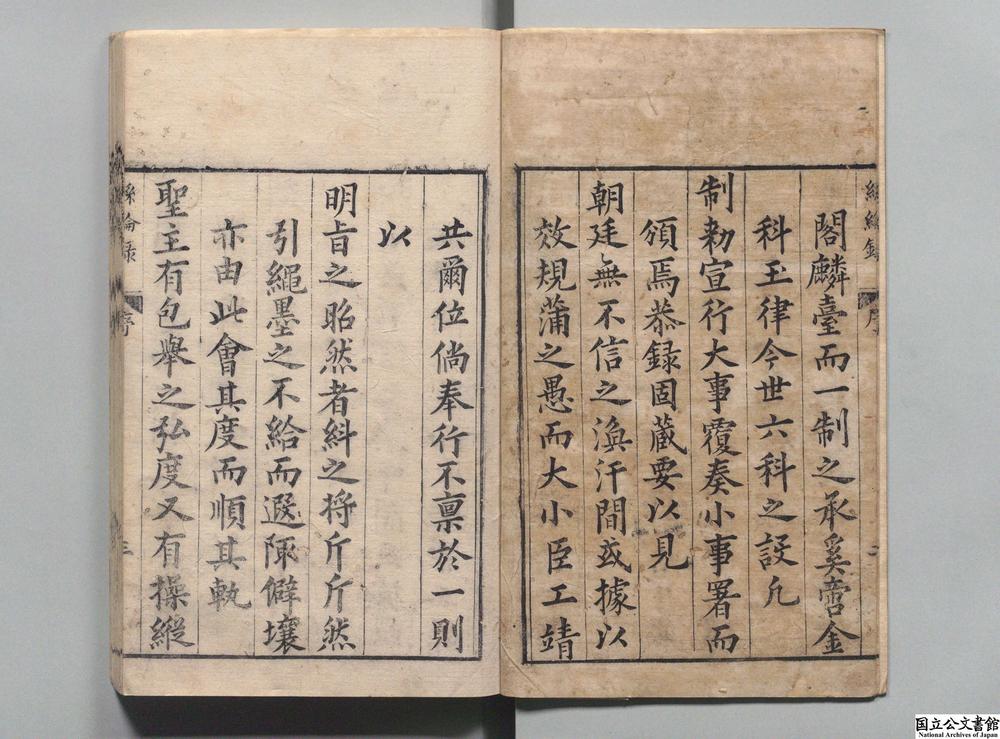 閣麟臺而一制之承奚啻金
科玉律今世六科之設凡
制勑宣行大事覆奏小事署而
頒焉恭録固蔵要以見
朝廷無不信之渙汗間或據以
效規蒲之愚而大小臣工靖
共爾位倘奉行不禀於一則
以
明旨之昭然者糾之将斤斤然
引繩墨之不給而遐陬僻壤
亦由此會其度而順其軌
聖主有包舉之弘度又有操縱
絲綸録
序
三
国立公文書館
National Archives of Japan